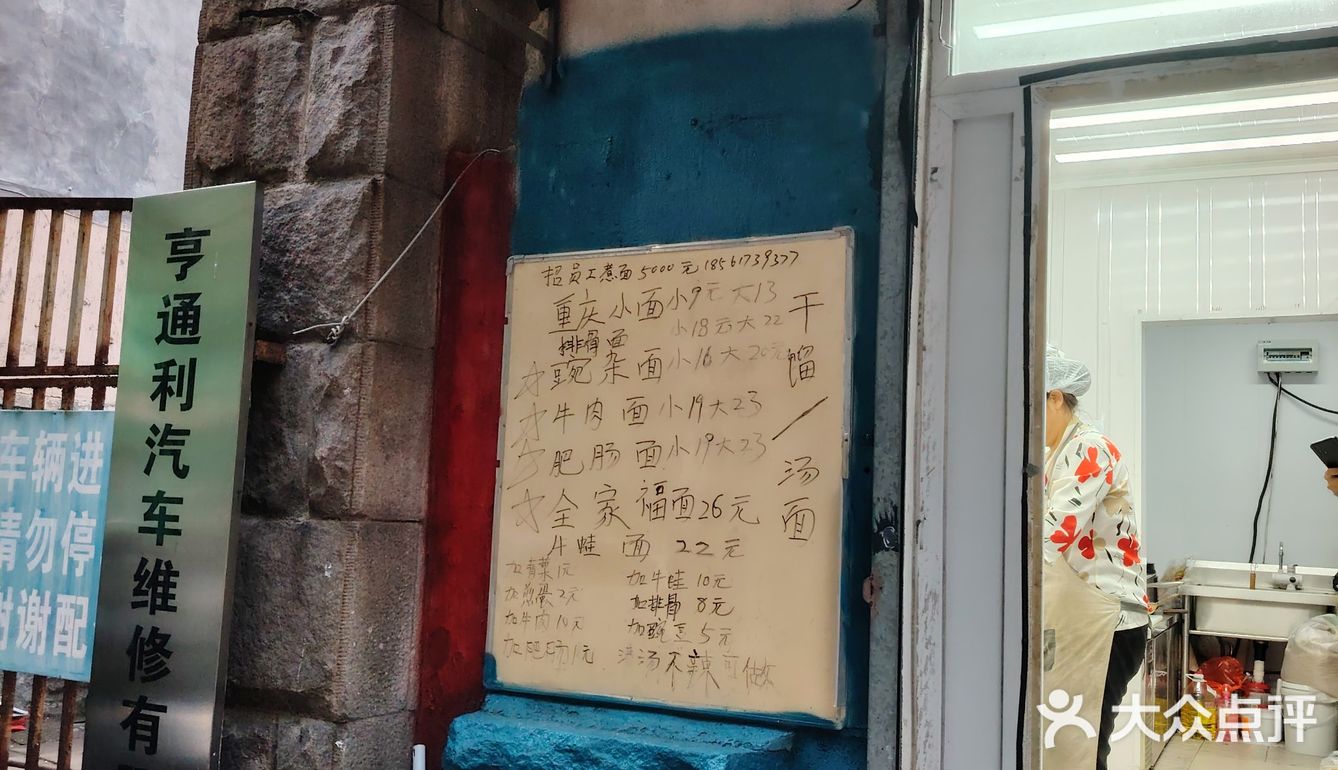 亨通利汽车维修有
车辆进
请勿停
谢配
招员工煮面5000元18561739377
重庆小面小9元大13
排骨面 小18元大22
豌杂面小16大20元
牛肉面小19大23
肥肠面小19大23
全家福面26元
牛蛙面 22元
干馏/汤面
加青菜1元
加煎蛋2元
加牛肉10元
加肥肠 元
加牛蛙10元
加排骨8元
加豌豆5元
汤不辣 做
大众点评